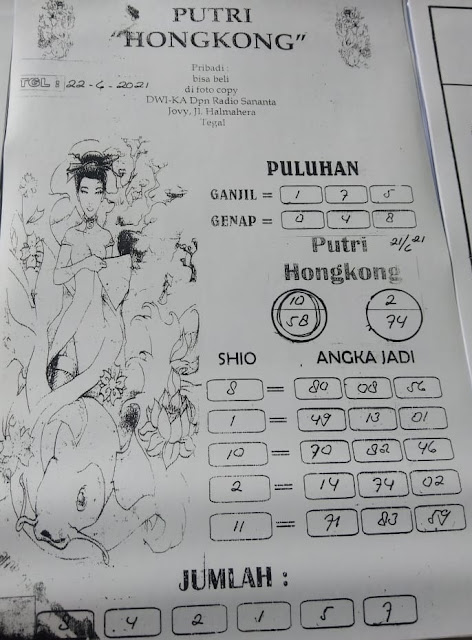 PUTRI
"HONGKONG"
Pribadi :
bisa beli
di foto copy
DWI-KA Dpn Radio Sananta
Jovy, Jl. Halmahera
Tegal
TGL : 22-6-2021
PULUHAN
GANJIL = 1 7 5
GENAP = 0 4 8
Putri 21/6 21
Hongkong
10 2
58 74
SHIO ANGKA JADI
8 = 80 08 56
1 = 49 13 01
10 = 70 82 46
2 = 14 74 02
11 = 71 83 59
JUMLAH :
8 4 2 1 5 7